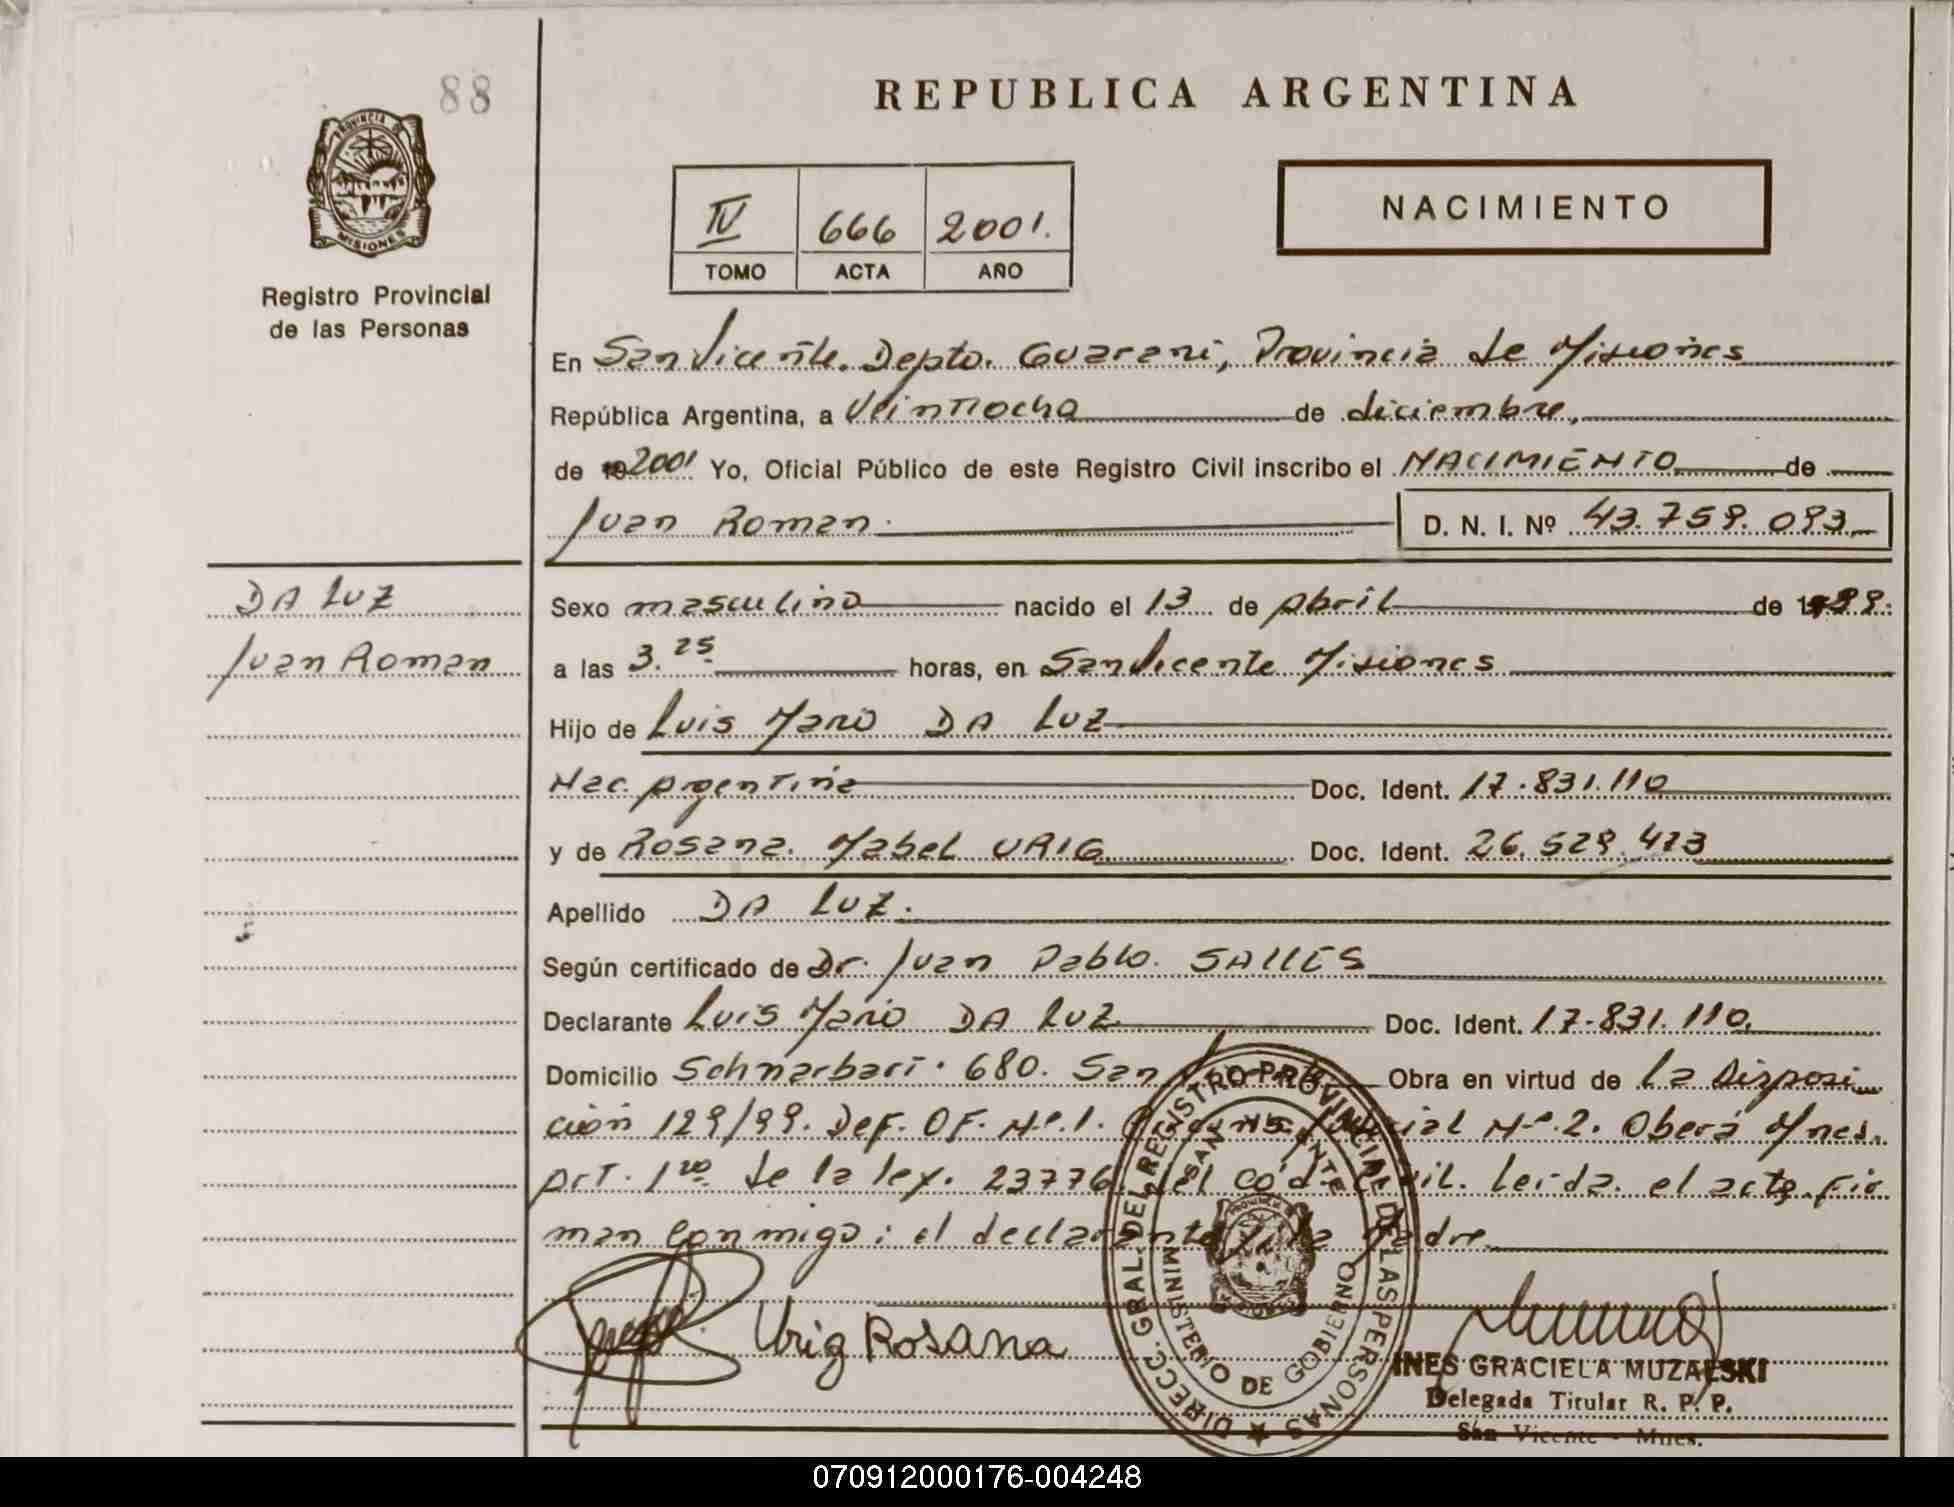 88
REPUBLICA ARGENTINA
PROVINCIA DE
MISIONES
Registro Provincial
de las Personas
IV 666 2001.
TOMO ACTA AÑO
NACIMIENTO
En San Vicente. Depto. Guarani, Provincia de Misiones
República Argentina, a Veintiocho de diciembre,
de 2001 Yo, Oficial Público de este Registro Civil inscribo el NACIMIENTO de
Juan Roman. D. N. I. Nº 43.759.093
DA LUZ
Juan Roman
Sexo masculino nacido el 13 de Abril de 1999.
a las 3.25 horas, en San Vicente Misiones
Hijo de Luis Mario DA LUZ
Nac. Argentina Doc. Ident. 17.831.110
y de Rosana. Mabel URIG Doc. Ident. 26.529.473
Apellido DA LUZ.
Según certificado de Dr. Juan Pablo. SALLES
Declarante Luis Mario DA LUZ Doc. Ident. 17.831.110.
Domicilio 680. San Obra en virtud de la disposi
ción 129/99. Def. OF. Nº.1. Nº.2. Oberá Mnes.
Art. 1ro. de la ley. 23776. del cód. Leida. el acta. fir
man conmigo: el declarante y la Madre.
Urig Rosana
DIRECC. GRAL. DEL REGISTRO PROVINCIAL DE LAS PERSONAS
SAN VICENTE
MINISTERIO DE GOBIERNO
INES GRACIELA MUZALSKI
Delegada Titular R. P. P.
San Vicente - Mnes.
070912000176-004248